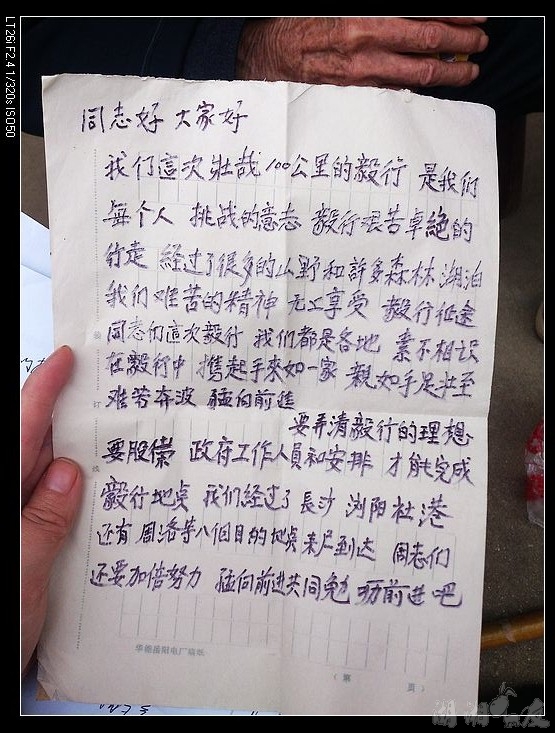 LT26i F2.4 1/320s ISO50
同志好 大家好
我们這次壮哉100公里的毅行 是我们
每个人 挑战的意志 毅行艰苦卓絶的
行走 经过了很多的山野和許多森林湖泊
我们难苦的精神 无上享受 毅行征途
同志们這次毅行 我们都是各地 素不相识
在毅行中 携起手來如一家 親如手足壮至
难苦奔波 猛向前進
要弄清毅行的理想
要服 政府工作人員和安排 才能完成
毅行地点 我们经过了長沙 浏阳社港
还有 周洛等八個目的地点 未尼到达 同志们
还要加倍努力 猛向前进共同勉 励前进吧
装
订
线
华能岳阳电厂稿纸
(第 页)
湖湘 友